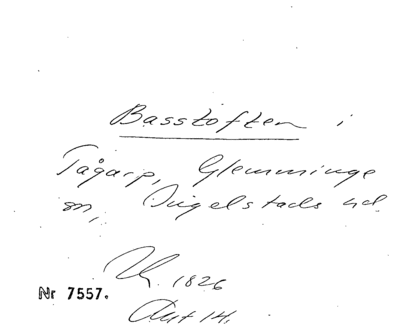 Basstoften i
Tågarp, Glemminge
sn, Ingelstads hd.
1826
Nr 7557.
Akt 14.